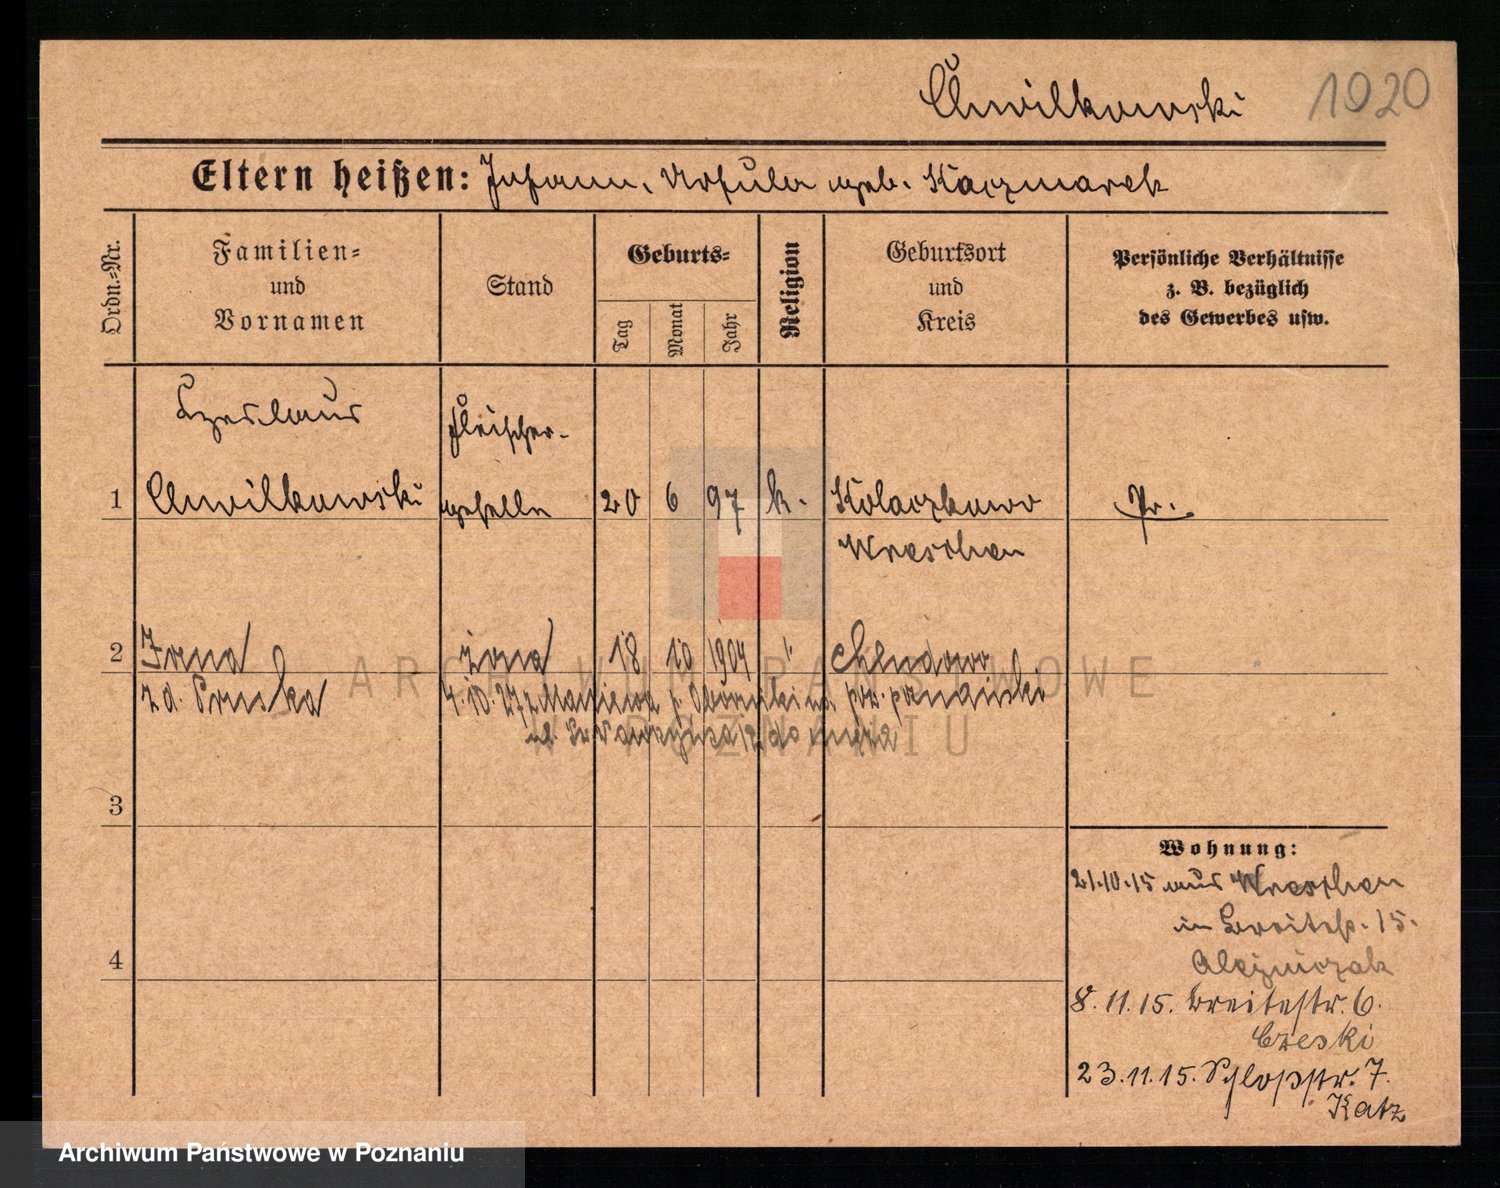 Chwilkowski 1920
Eltern heißen: Johann, Ursula geb. Kaczmarek
Ordn.-Nr.
Familien-
und
Vornamen
Stand
Geburts-
Tag
Monat
Jahr
Religion
Geburtsort
und
Kreis
Persönliche Verhältnisse
z. B. bezüglich
des Gewerbes usw.
Czeslaus Fleischer-
1 Chwilkowski geselle 20 6 97 k. Kolaczkowo Pr.
Wreschen
2 Irena żona 18 10 1904 Chludowo
z d. Pruska 4.10.27 z
ARCHIWUM PAŃSTWOWE
W POZNANIU
3
4
Wohnung:
21.10.15 aus Wreschen
in Breitestr. 15.
8.11.15. Breitestr. 6.
Czeski
23.11.15. Schloßstr. 7.
Katz
Archiwum Państwowe w Poznaniu